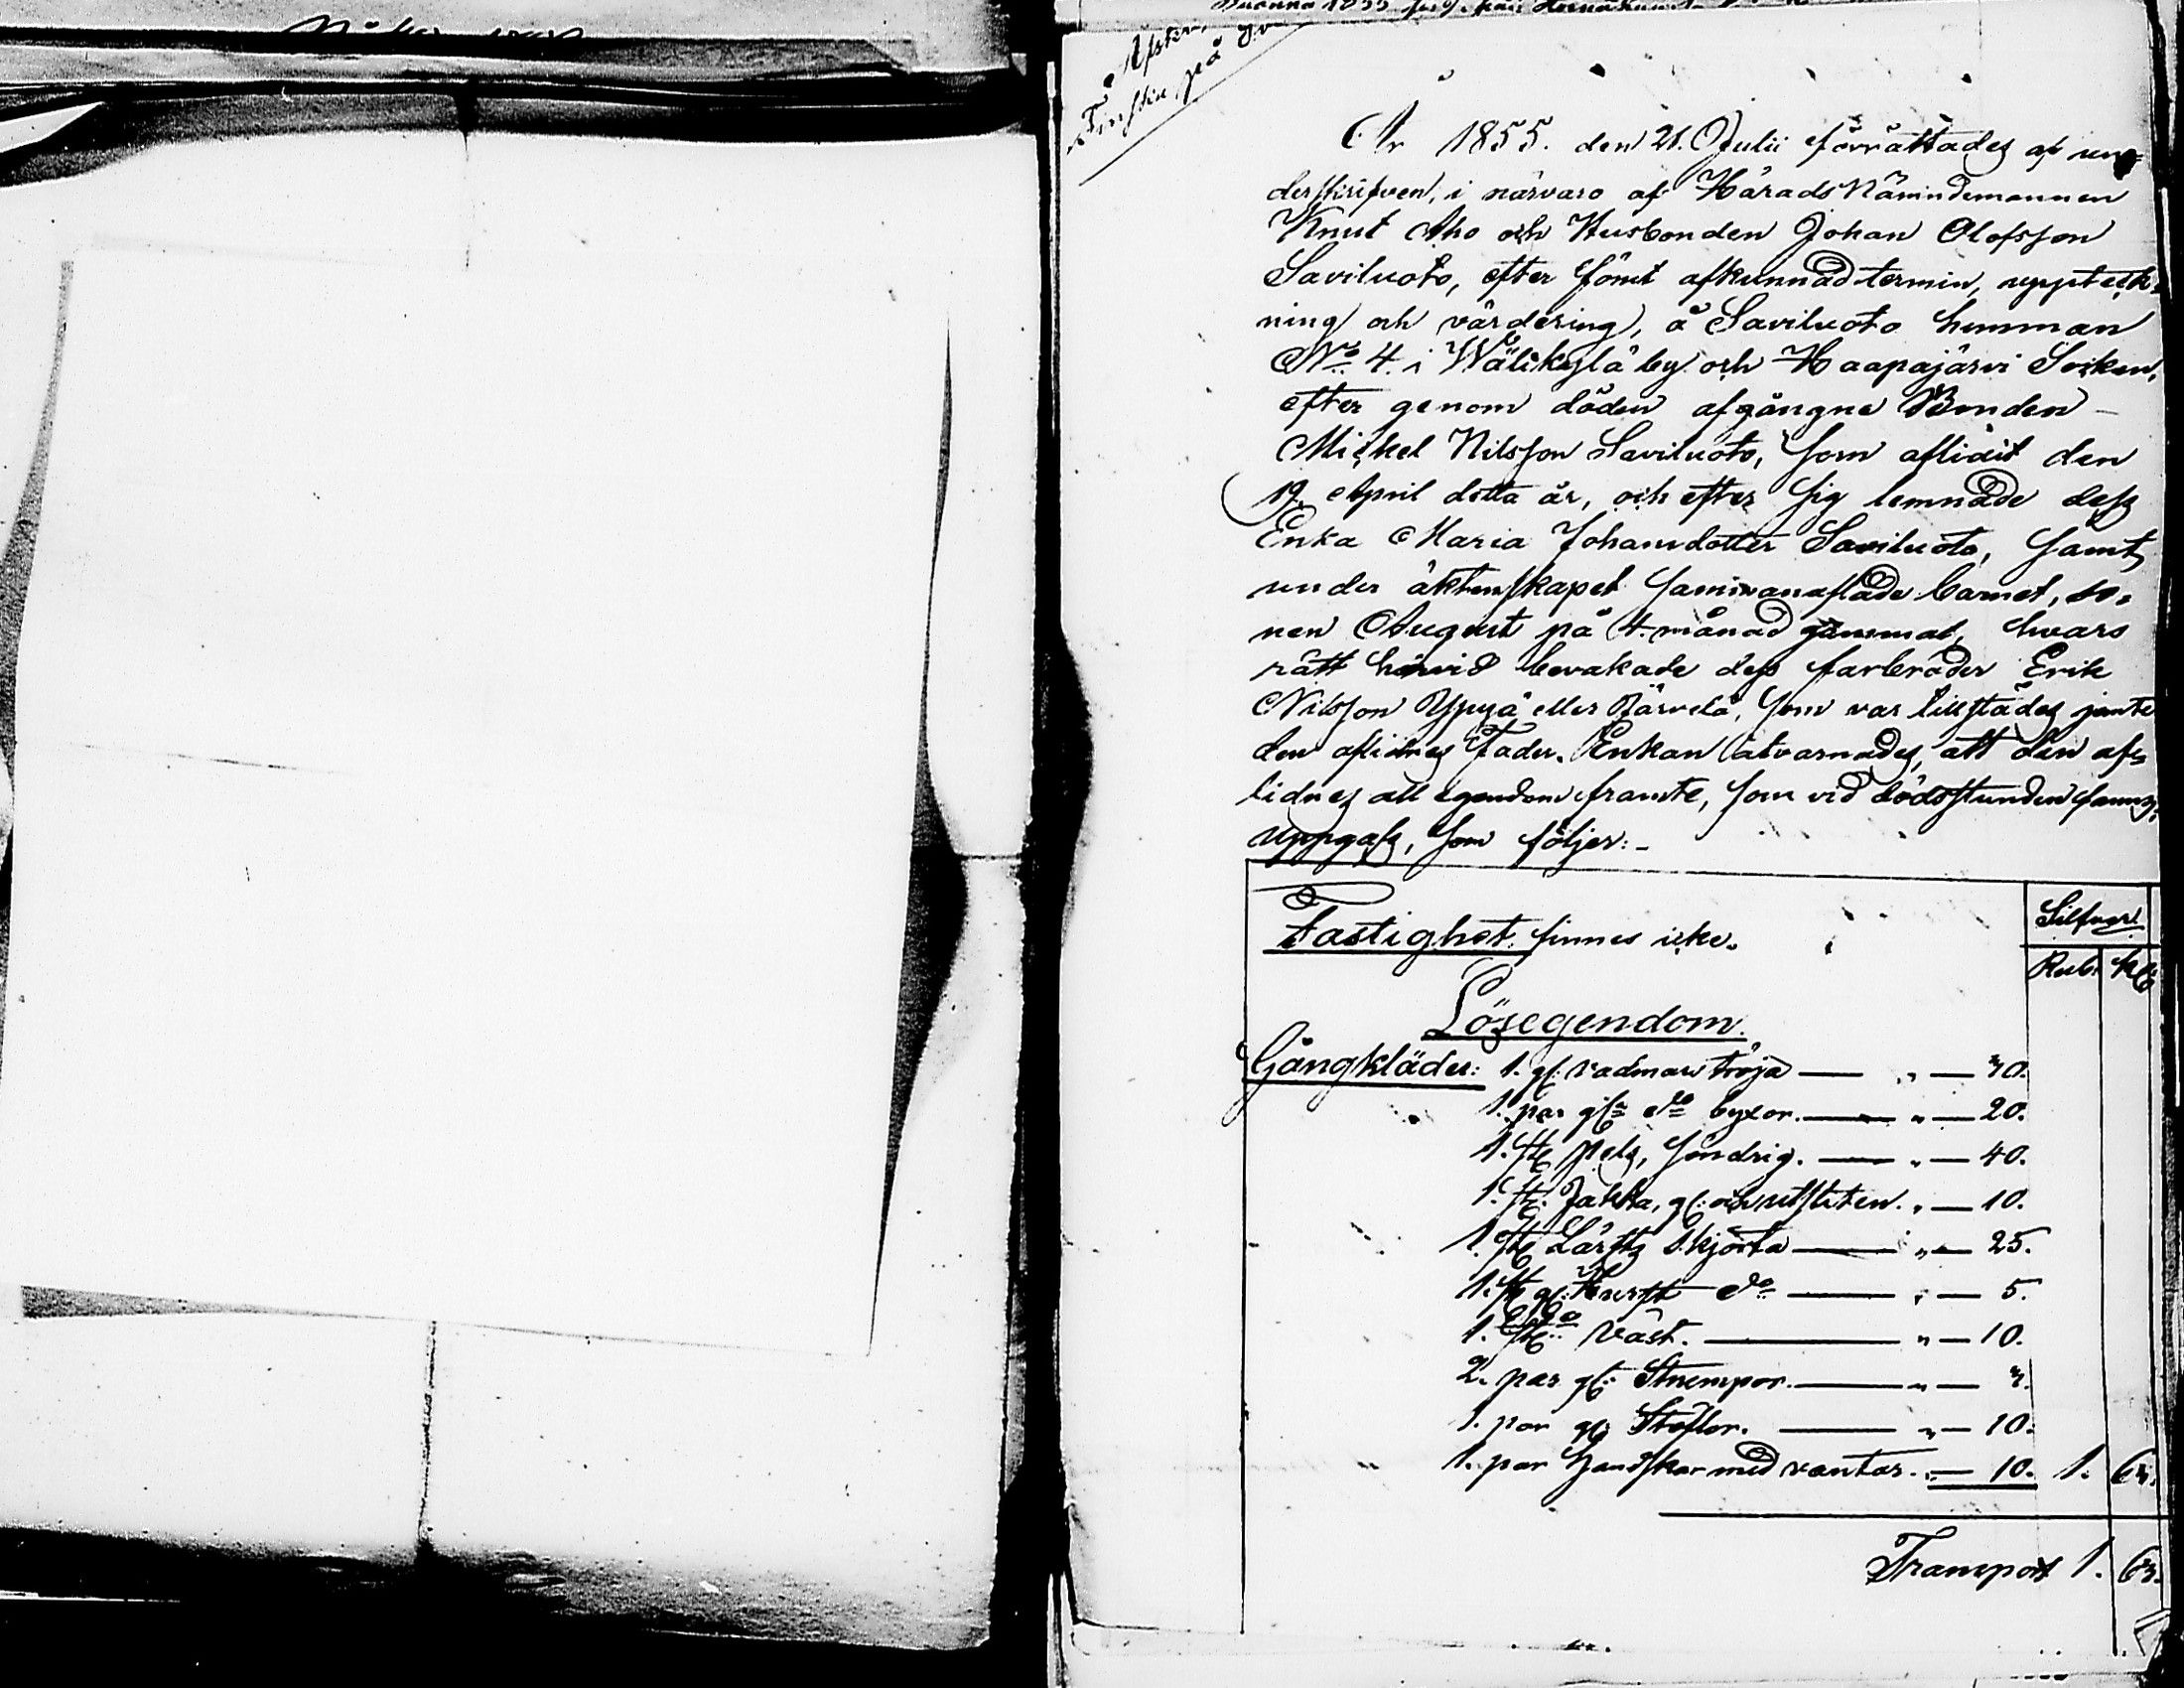 År 1855. den 21. Julii förrättades af un=
derskrifven, i närvaro af HäradsNämndemannen
Knut Aho och Husbonden Johan Olofsson
Saviluoto, efter sömt afkunnad termin, uppteck=
ning och värdering, å Saviluoto hemman
No 4. i Wälikylä by och Haapajärvi Socken,
efter genom döden afgångne Bonden –
Mickel Nilsson Saviluoto, som aflidit den
19. April detta år, och efter sig lemnade dess
Enka Maria Johansdotter Saviluoto, samt
under äktenskapet sammanaflade barnet, so=
nen August på 4. månad gammal, hvars
rätt härvid bevakade dess farbroder Erik
Nilsson Yppyä eller Järvelä, som var tillstädes jemte
den aflidnes Fader. Enkan åtvarnades, att den af=
lidnes all egendom framte, som vid dödsstunden fanns,
uppgafs, som följer:–
Fastighet finnes icke.
Silfver
Rub. Kop
Lösegendom.
Gångkläder: 1. gl: vadmans tröja — „ — 30.
1. par gla do byxor. — „ — 20.
1. st: Pels, söndrig. — „ — 40.
1. st: Jakka, gl: och utsliten. „ — 10.
1. st: Lärfts skjorta — „ — 25.
1. st: gl: Hurst do — „ — 5.
1. st: do väst. — „ — 10.
2. par gl: Strumpor. — „ — 3.
1. par gl: Stöflor. — „ — 10.
1. par Handskar med vantar. „ — 10. 1. 63.
Transport 1. 63.